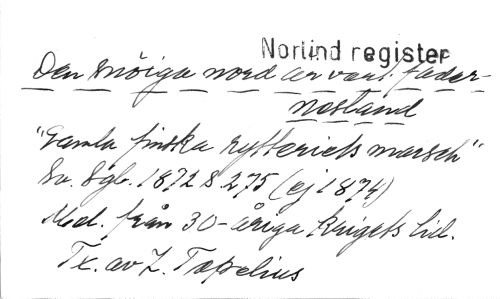 Norlind register
Den snöiga nord är vårt fäder-
nesland
"Gamla finska rytteriets marsch"
Sv. Sgb. 1872 s 275 (ej 1874)
Mel. från 30-åriga krigets tid.
Tx. av Z. Topelius